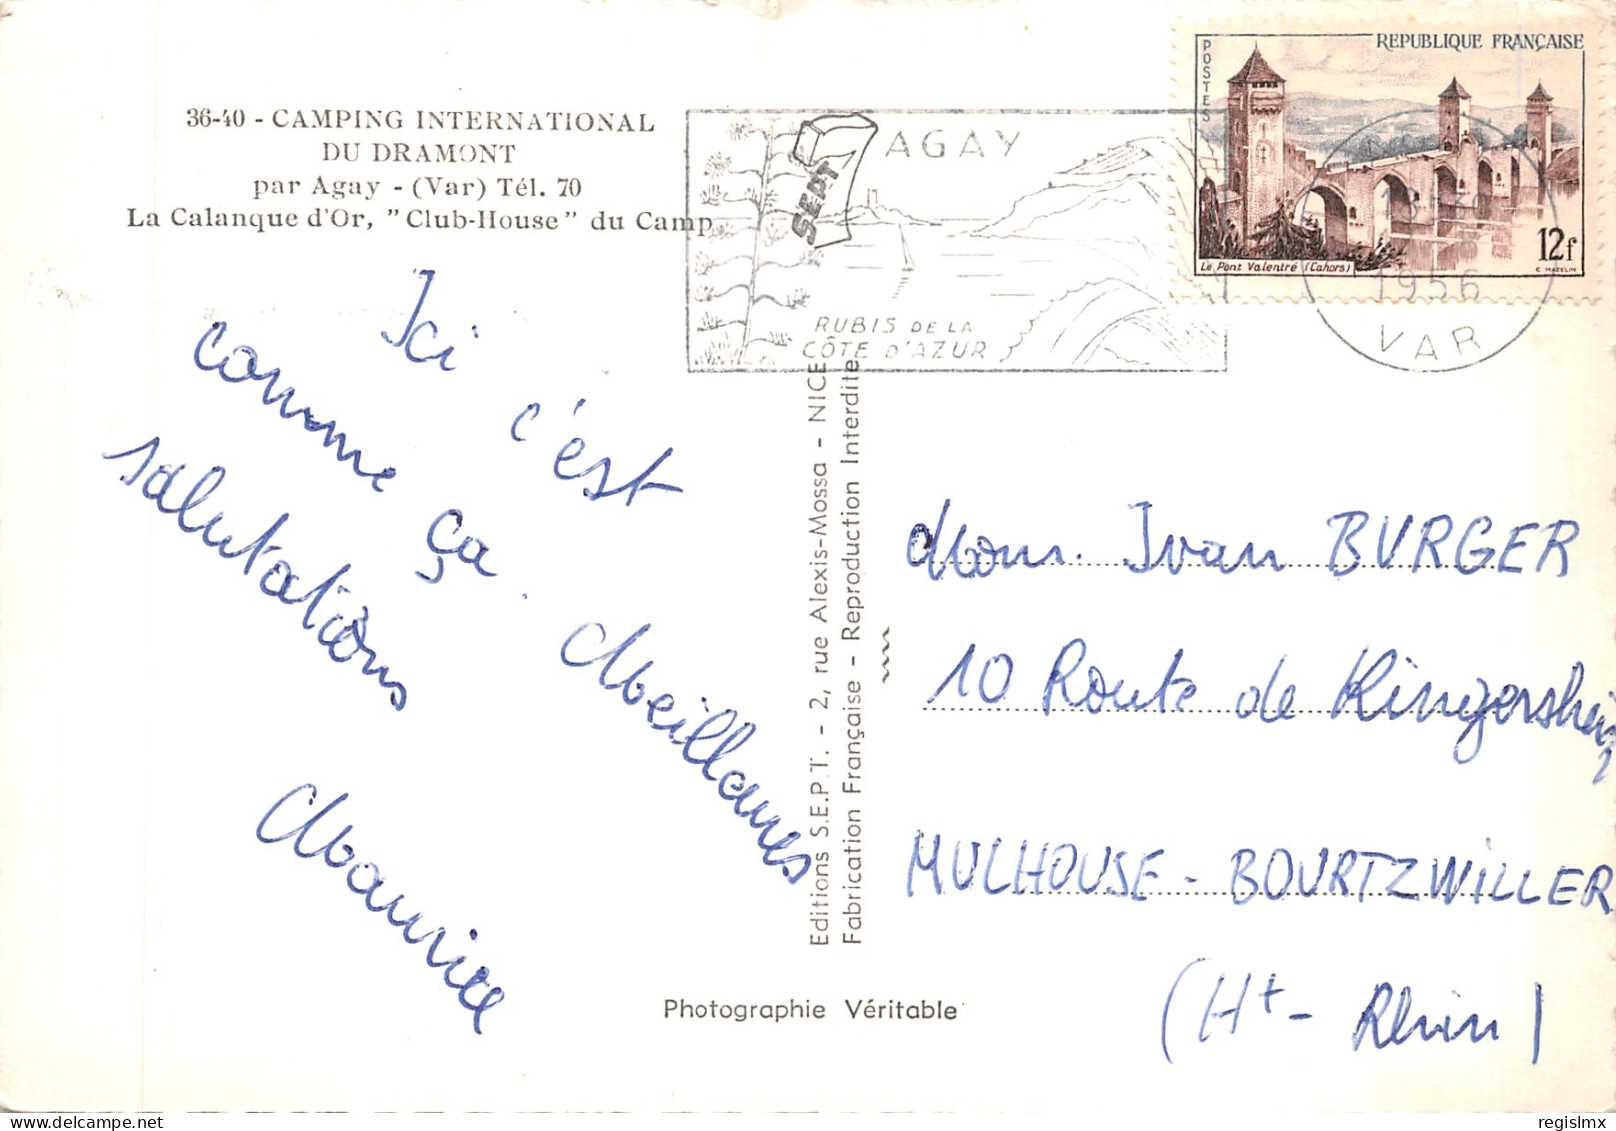 36-40 - CAMPING INTERNATIONAL
DU DRAMONT
par Agay - (Var) Tél. 70
La Calanque d'Or, "Club-House" du Camp
SEPT
AGAY
RUBIS DE LA
CÔTE D'AZUR
1956
VAR
POSTES
REPUBLIQUE FRANÇAISE
Le Pont Valentré (Cahors)
12f
C. MAZELIN
Ici c'est
comme ça. Meilleures
salutations
Maurice
Editions S.E.P.T. - 2, rue Alexis-Mossa - NICE
Fabrication Française - Reproduction Interdite
Photographie Véritable
Mons. Ivan BURGER
10 Route de Kingersheim
MULHOUSE - BOURTZWILLER
(Ht - Rhin)
delcampe.net
regislmx